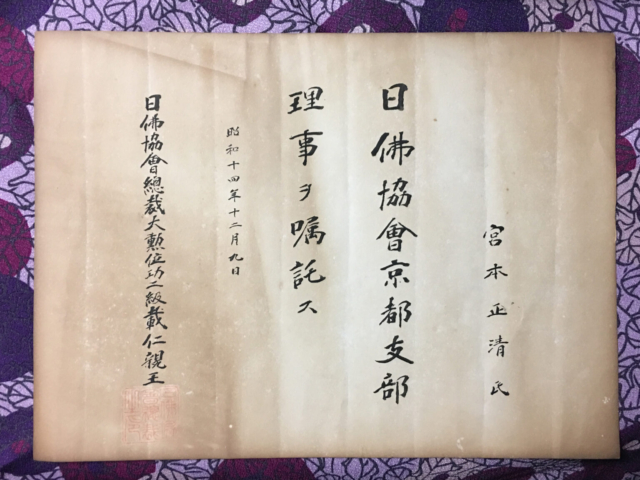 宮本正清氏
日佛協會京都支部
理事ヲ嘱託ス
昭和十四年十二月九日
日佛協會總裁大勲位功二級載仁親王